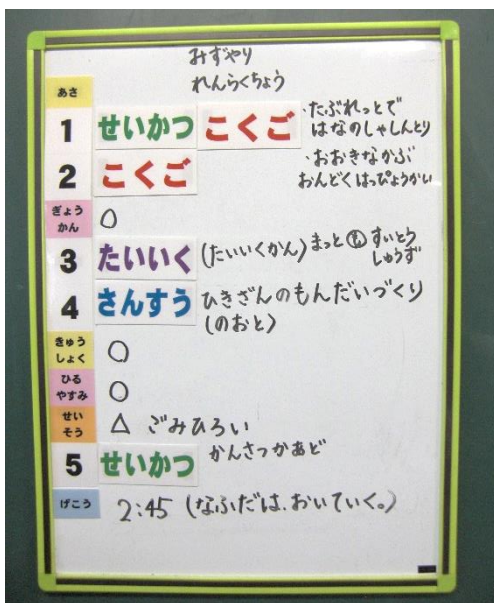 みずやり
れんらくちょう
あさ
1 せいかつ こくご ・たぶれっとで
はなのしゃしんとり
2 こくご ・おおきなかぶ
おんどくはっぴょうかい
ぎょう
かん ○
3 たいいく (たいいくかん) まっと も すいとう
しゅうず
4 さんすう ひきざんのもんだいづくり
(のおと)
きゅう
しょく ○
ひる
やすみ ○
せい
そう △ ごみひろい
5 せいかつ かんさつかあど
げこう 2:45 (なふだは、おいていく。)